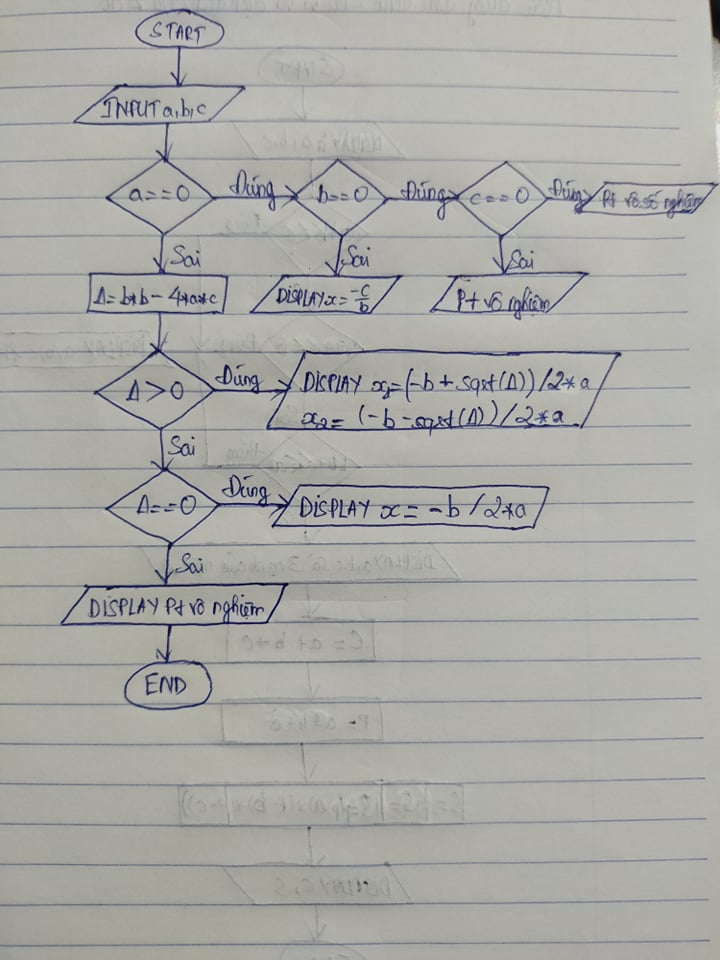 START
INPUT a, b, c
a==0 Đúng b==0 Đúng c==0 Đúng Pt vô số nghiệm
Sai Sai Sai
Δ=b*b-4*a*c DISPLAY x=-c/b Pt vô nghiệm
Δ>0 Đúng DISPLAY x₁=(-b+sqrt(Δ))/2*a
x₂=(-b-sqrt(Δ))/2*a
Sai
Δ==0 Đúng DISPLAY x=-b/2*a
Sai
DISPLAY Pt vô nghiệm
END